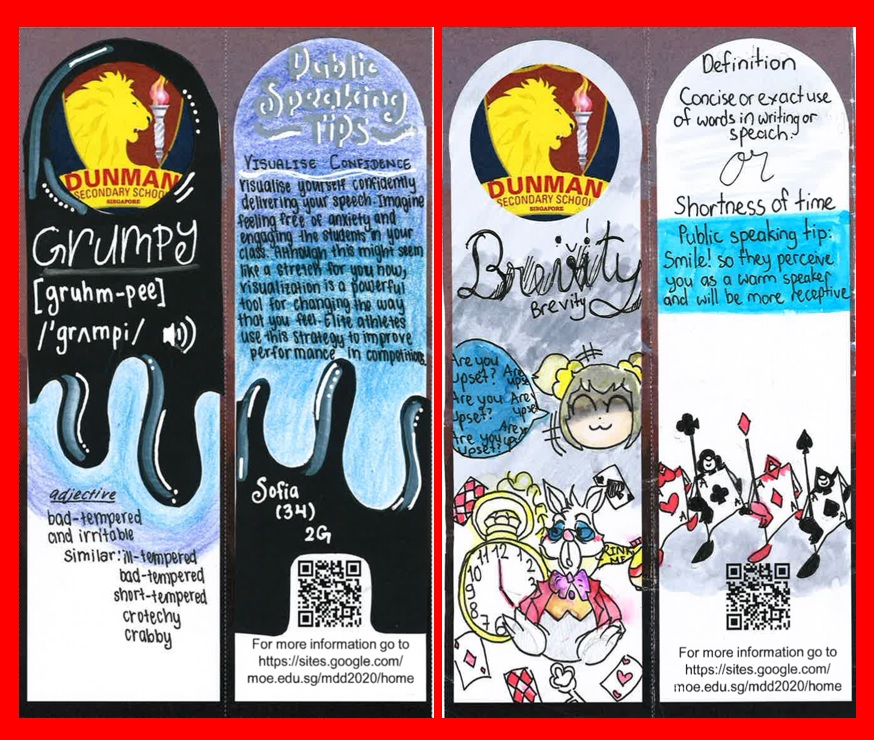 DUNMAN
SECONDARY SCHOOL
SINGAPORE
Grumpy
[gruhm-pee]
/'grʌmpi/
adjective
bad-tempered
and irritable
Similar: ill-tempered
bad-tempered
short-tempered
crotechy
crabby
Public
Speaking
Tips
Visualise Confidence
Visualise yourself confidently
delivering your speech. Imagine
feeling free of anxiety and
engaging the students in your
class. Although this might seem
like a stretch for you now,
visualization is a powerful
tool for changing the way
that you feel. Elite athletes
use this strategy to improve
performance in competitions
Sofia
(34)
2G
For more information go to
https://sites.google.com/
moe.edu.sg/mdd2020/home
DUNMAN
SECONDARY SCHOOL
SINGAPORE
Brevity
Brevity
Are you
upset? Are
upset?
Are you Are
upset? upset?
Are you
upset?
12
11
10
9
8
7
6
DRINK
ME
Definition
Concise or exact use
of words in writing or
speech.
or
Shortness of time
Public speaking tip:
Smile! so they perceive
you as a warm speaker
and will be more receptive
A
A
A
A
For more information go to
https://sites.google.com/
moe.edu.sg/mdd2020/home